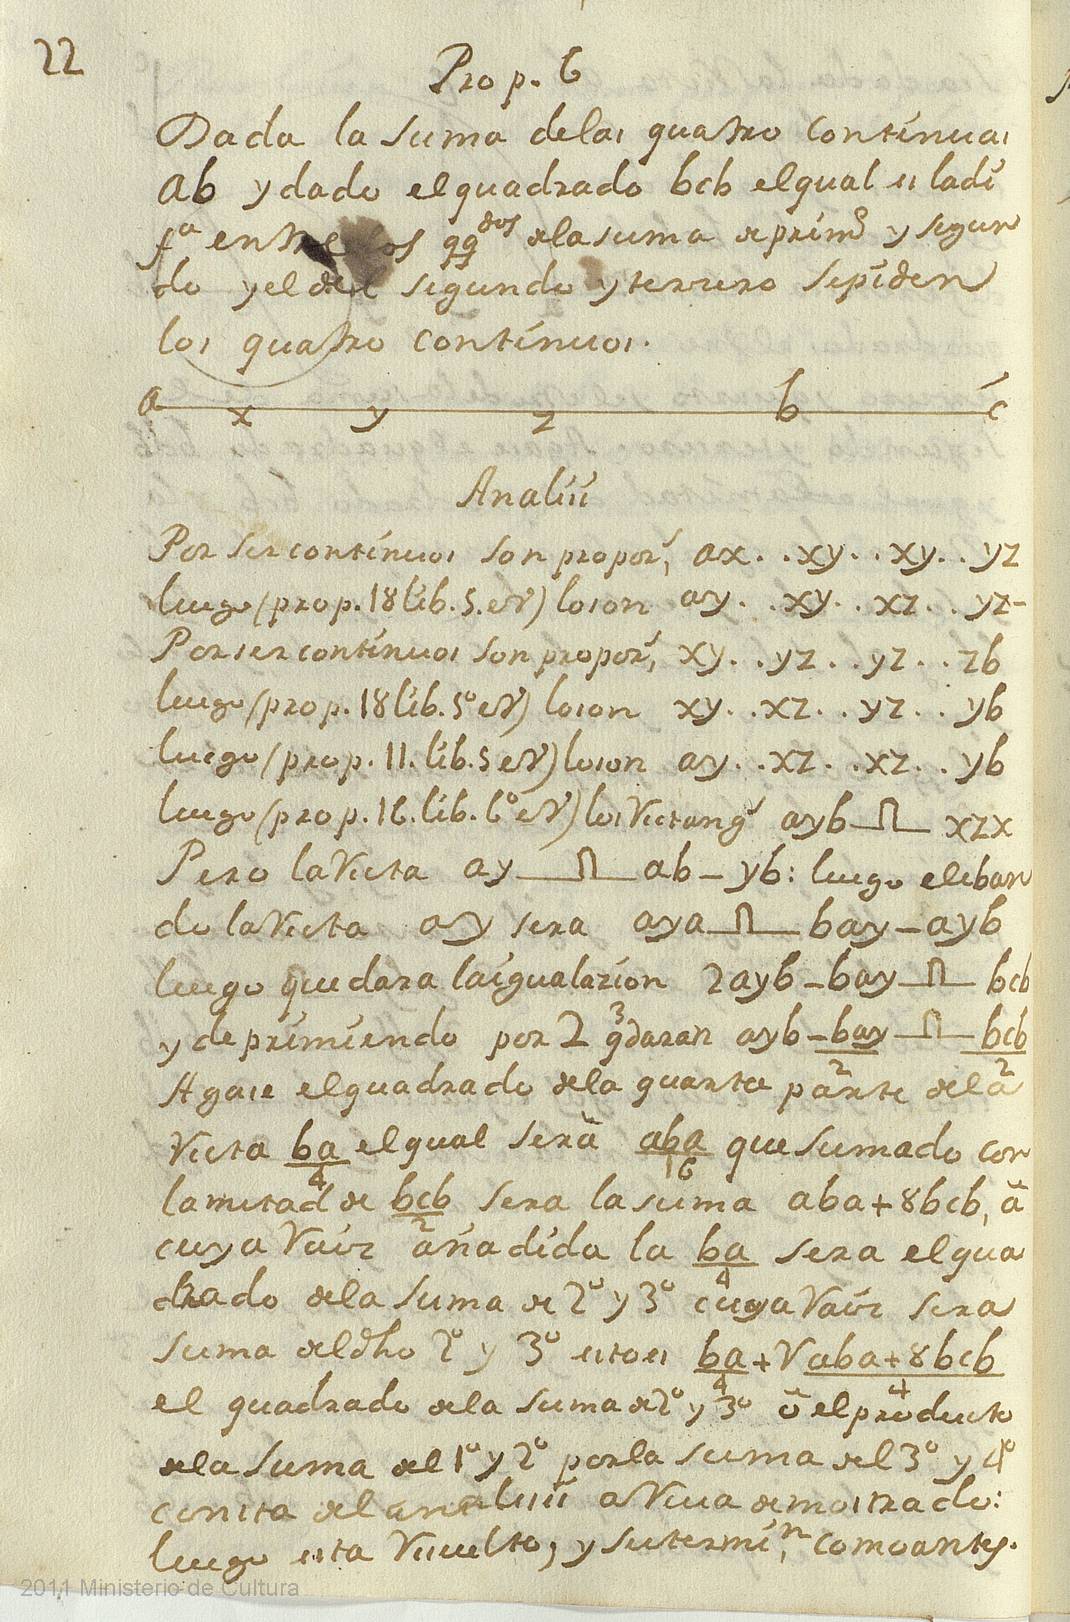 22
Prop. 6
Dada la suma delas quatro continuas
ab y dado el quadrado bcb el qual es la di
fª entre los qq^dos de la suma de primº y segun
do y el del segundo y tercero se piden
los quatro continuos.
a x y z b c
Analisis
Por ser continuos son propors, ax..xy..xy..yz
luego (prop. 18 lib. 5. eV) lo son ay..xy..xz..yz-
Por ser continuos son propors, xy..yz..yz..zb
luego (prop. 18 lib. 5º eV) lo son xy..xz..yz..yb
luego (prop. 11. lib. 5 eV) lo son ay..xz..xz..yb
luego (prop. 16. lib. 6º eV) los rectangs ayb ⊓ xzx
Pero la recta ay ⊓ ab – yb: luego eleban
do la recta ay sera aya ⊓ bay – ayb
luego quedara la igualazion 2ayb – bay ⊓ bcb
y deprimiendo por 2 qdaran ayb – bay/2 ⊓ bcb/2
Agase el quadrado de la quarta parte de la
recta ba/4 el qual será aba/16 que sumado con
la mitad de bcb/2 sera la suma aba + 8bcb, à
cuya raiz añadida la ba/4 sera el qua
drado de la suma de 2º y 3º cuya raiz sera
suma del dho 2º y 3º esto es ba/4 + V aba + 8bcb/4
el quadrado de la suma de 2º y 3º ò el producto
de la suma del 1º y 2º por la suma del 3º y 4º
consta del analisis a demostrado:
luego esta resuelto, y su termin, como antes.
2011 Ministerio de Cultura